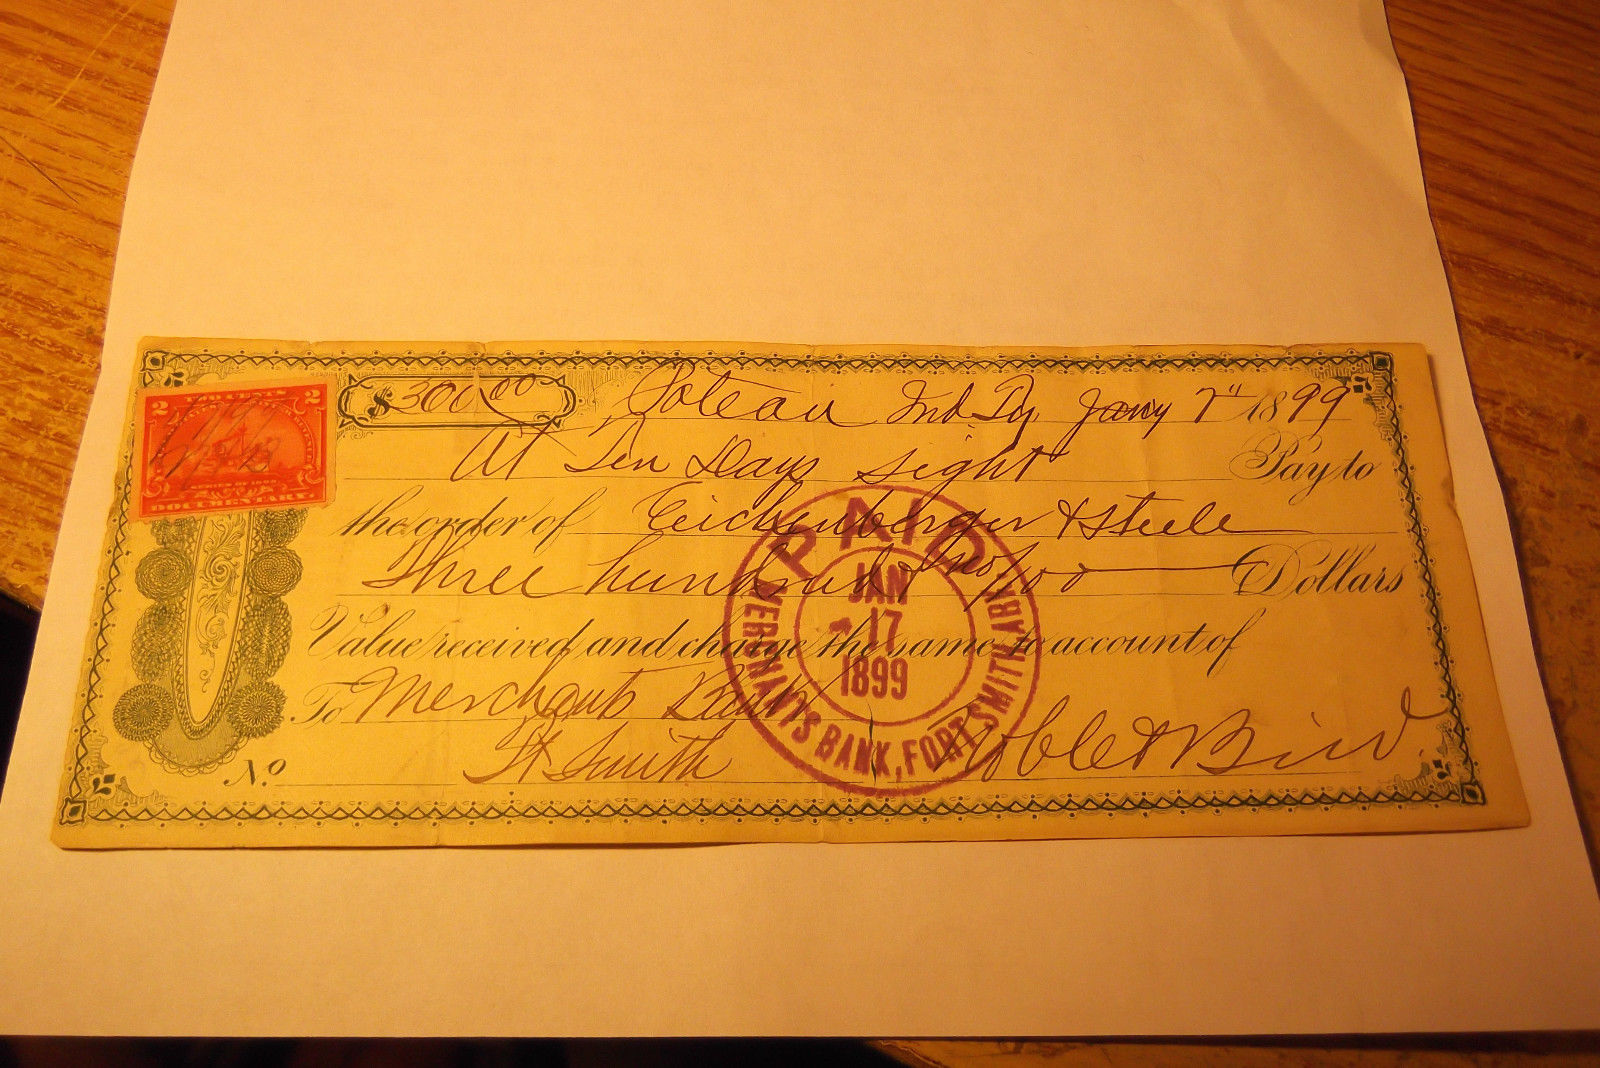 TWO CENTS
2 2
SERIES OF 1898
DOCUMENTARY.
$300.00 Poteau Ind. Ty. Jany 7" 1899
At Ten Days sight Pay to
the order of Eichenberger & Steele
Three hundred & no/100 Dollars
Value received and charge the same to account of
To Merchants Bank
Ft Smith Noble & Bird.
No.
PAID
JAN
17
1899
MERCHANTS BANK, FORT SMITH, ARK.